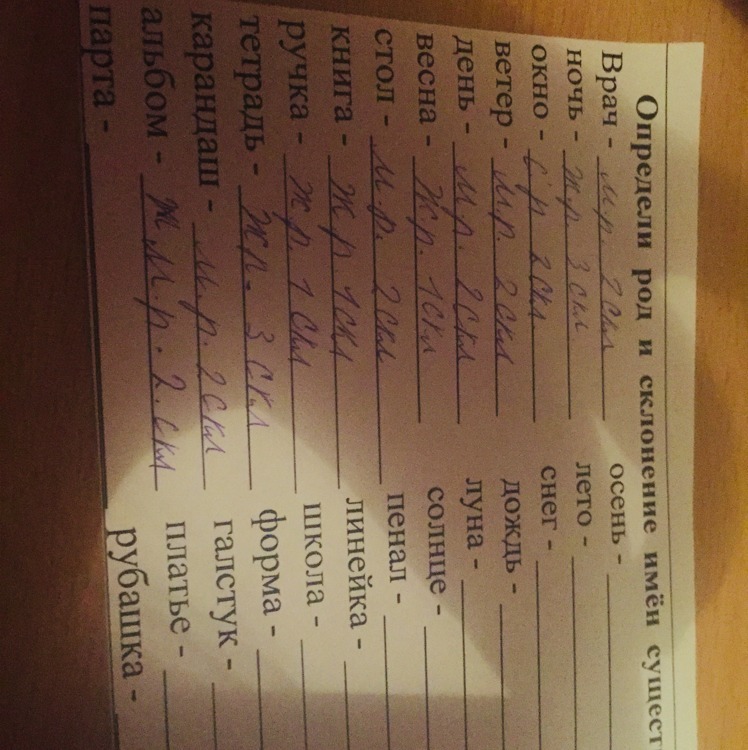 Определи род и склонение имён сущест
Врач - м.р. 2 скл осень -
ночь - ж.р. 3 скл лето -
окно - с.р 2 скл снег -
ветер - м.р. 2 скл дождь -
день - м.р. 2 скл луна -
весна - ж.р. 1 скл солнце -
стол - м.р. 2 скл пенал -
книга - ж.р 1 скл линейка -
ручка - ж.р. 1 скл школа -
тетрадь - ж.р. 3 скл форма -
карандаш - м.р. 2 скл галстук -
альбом - м.р. 2. скл платье -
парта - рубашка -